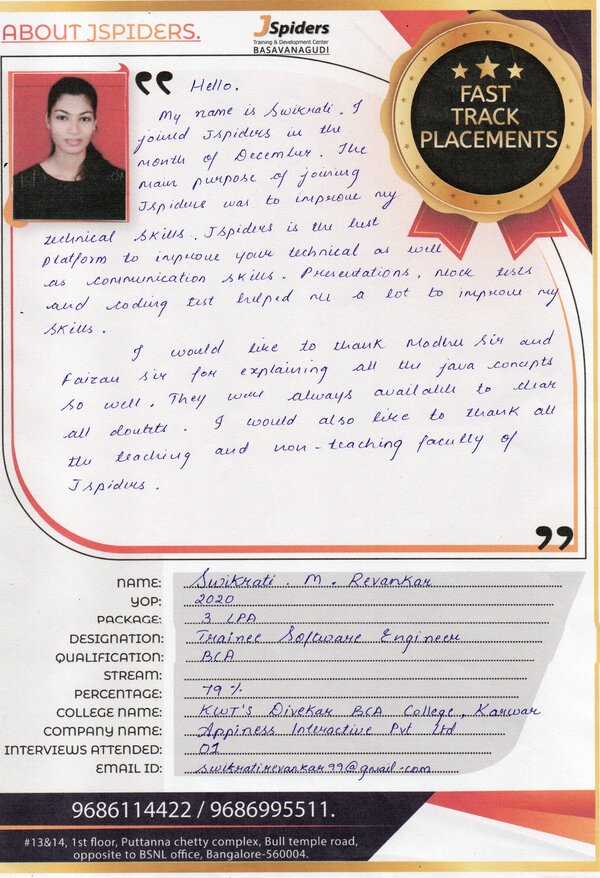 ABOUT JSPIDERS.
JSpiders
Training & Development Center
BASAVANAGUDI
FAST
TRACK
PLACEMENTS
Hello.
My name is Swikrati. I
joined Jspiders in the
month of December. The
main purpose of joining
Jspiders was to improve my
technical skills. Jspiders is the best
platform to improve your technical as well
as communication skills. Presentations, mock tests
and coding test helped me a lot to improve my
skills.
I would like to thank Madhu Sir and
Faizan Sir for explaining all the java concepts
so well. They were always available to clear
all doubts. I would also like to thank all
the teaching and non-teaching faculty of
Jspiders.
NAME: Swikrati. M. Revankar
YOP: 2020
PACKAGE: 3 LPA
DESIGNATION: Trainee Software Engineer
QUALIFICATION: BCA
STREAM:
PERCENTAGE: 79 %
COLLEGE NAME: KWT'S Divekar BCA College, Karwar
COMPANY NAME: Appiness Interactive Pvt Ltd
INTERVIEWS ATTENDED: 01
EMAIL ID: swikratirevankar99@gmail.com
9686114422 / 9686995511.
#13&14, 1st floor, Puttanna chetty complex, Bull temple road,
opposite to BSNL office, Bangalore-560004.